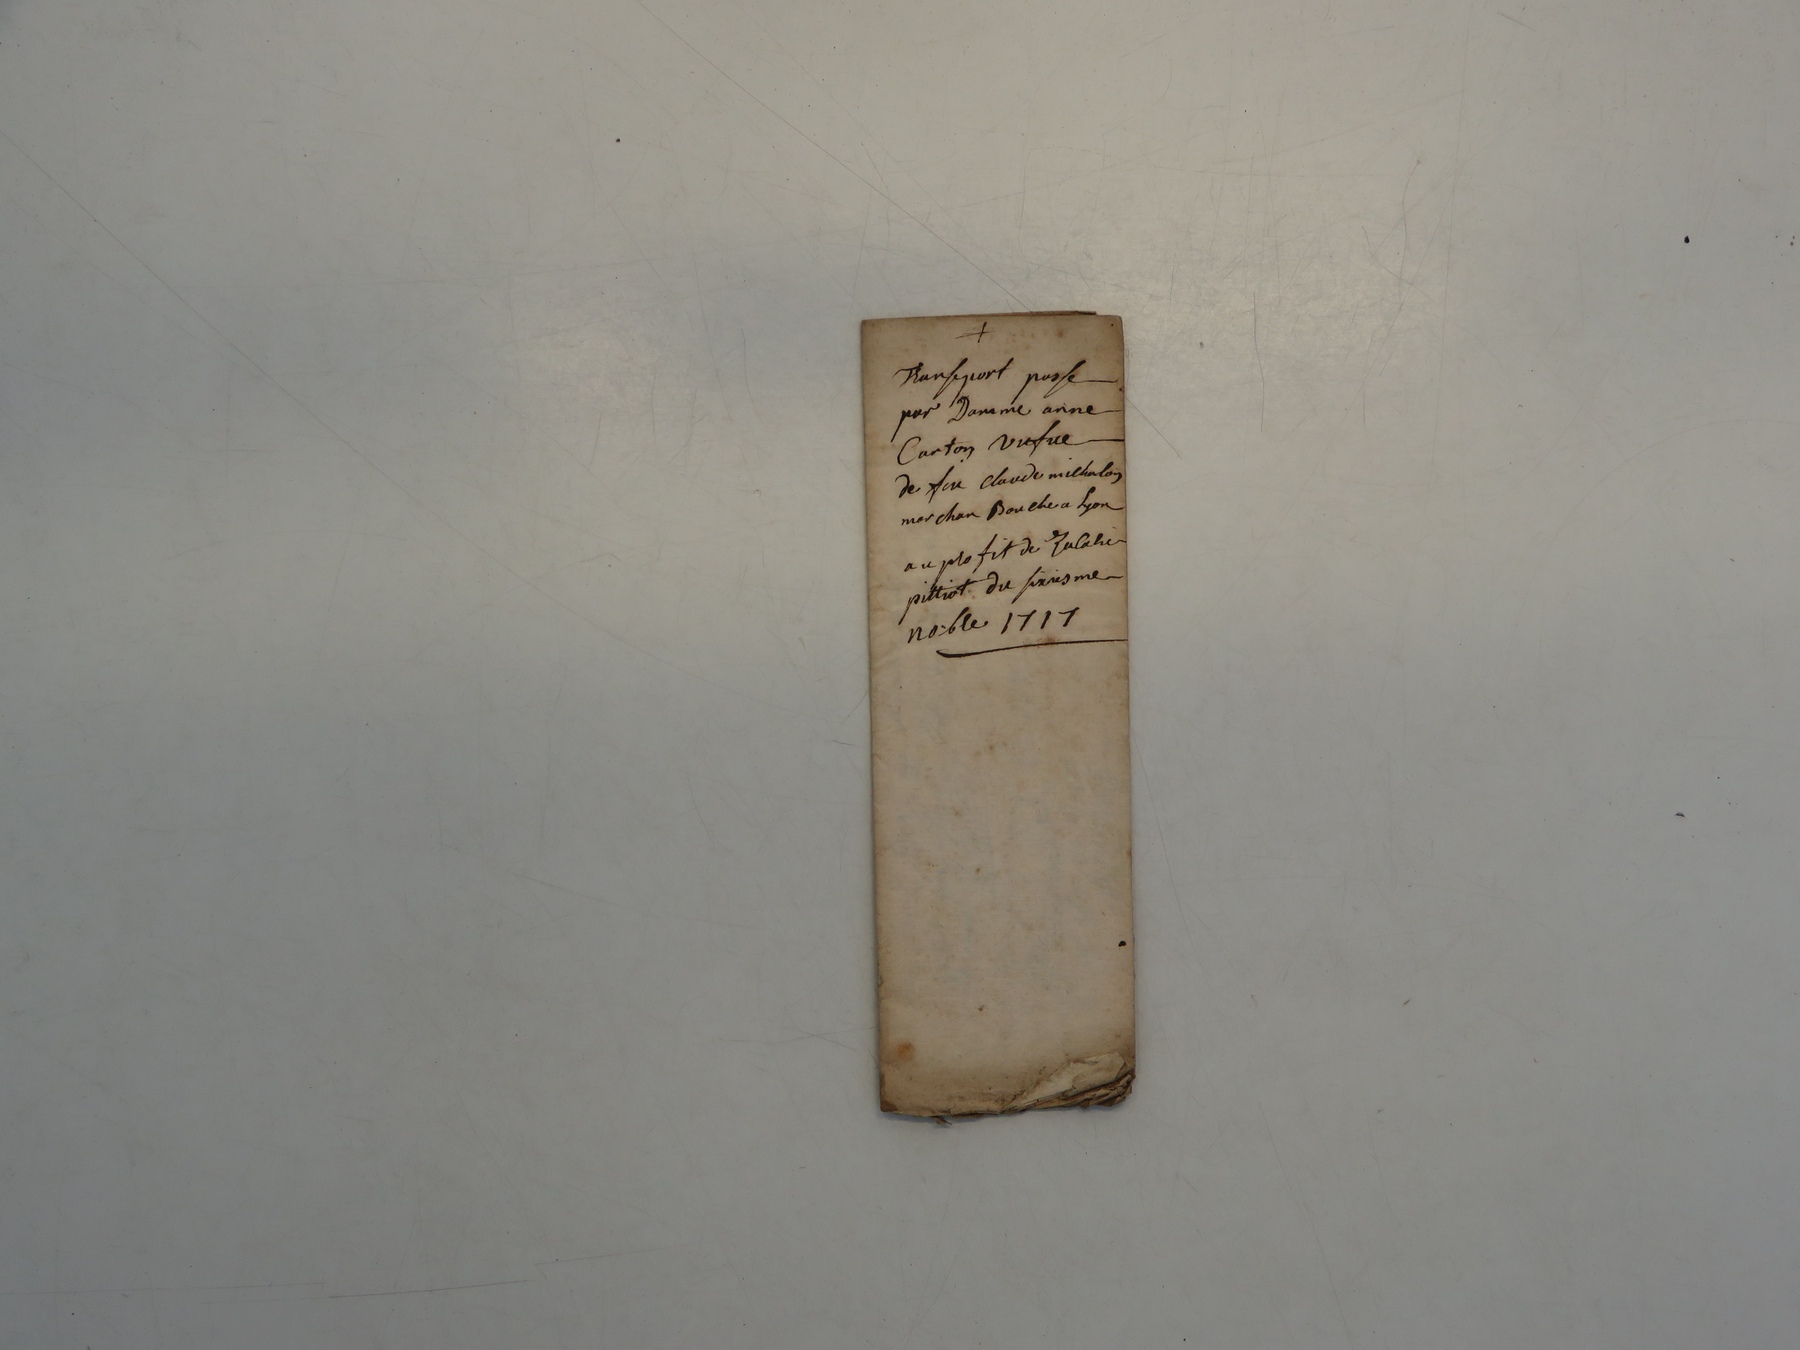 +
Transport passe
par Damme anne
Carton vefue
de feu claude michalon
marchan Bouche a Lyon
au profit de Zacarie
pittiot du sixiesme
no:ble 1717